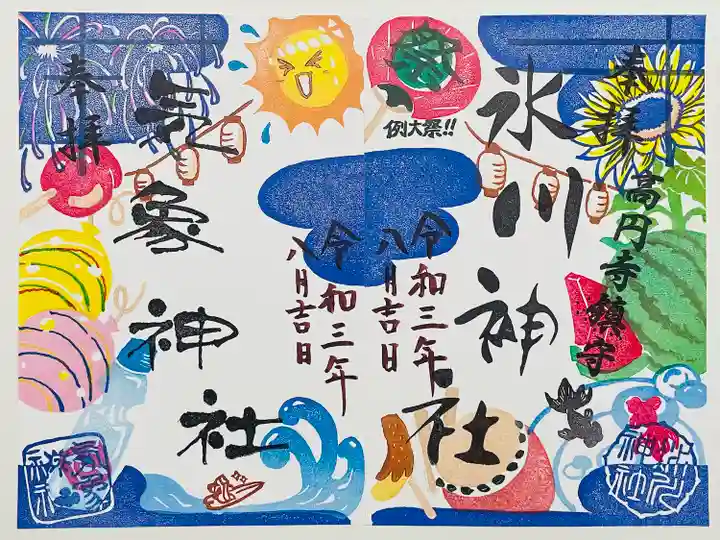 奉拝
高円寺鎮守
氷川神社
例大祭!!
令和三年
八月吉日
奉拝
気象神社
令和三年
八月吉日
氷川
神社
気象
神社